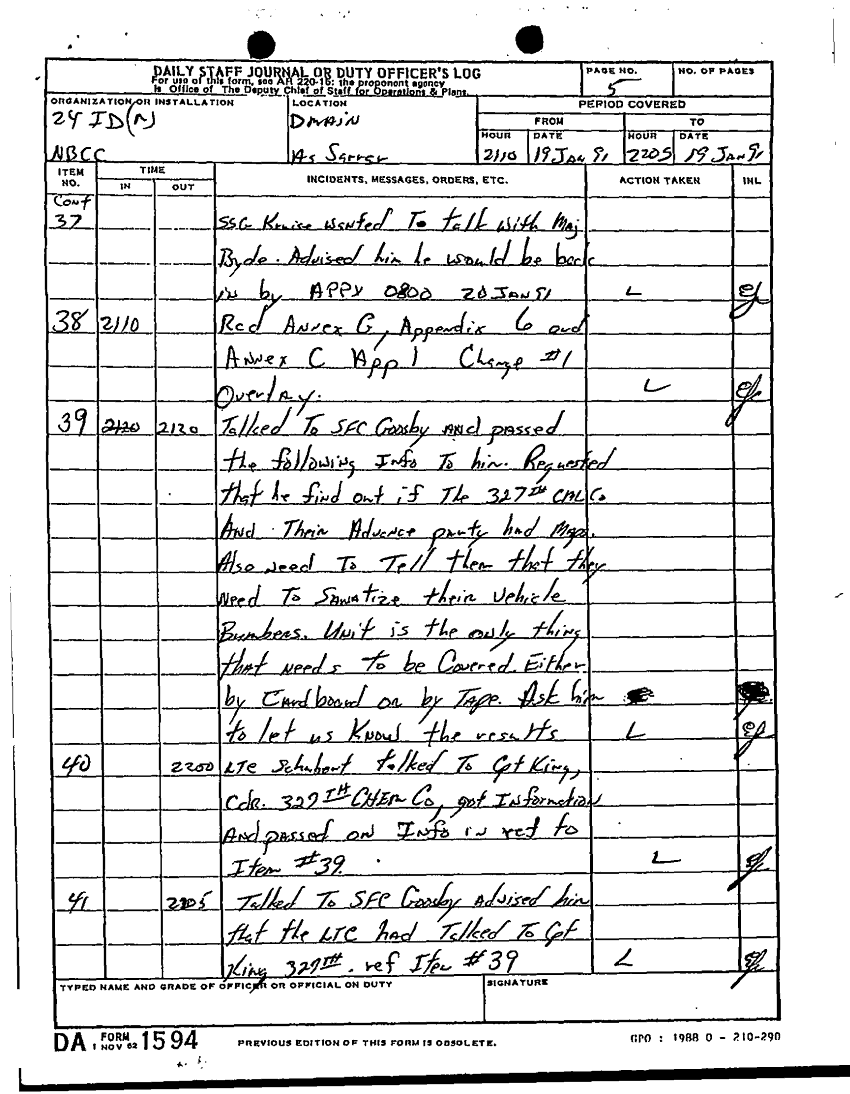 DAILY STAFF JOURNAL OR DUTY OFFICER'S LOG
For use of this form, see AR 220-15; the proponent agency
is Office of The Deputy Chief of Staff for Operations & Plans.
PAGE NO.
5
NO. OF PAGES
ORGANIZATION OR INSTALLATION
24 ID(M)
NBCC
LOCATION
DMAIN
As Sarrar
PERIOD COVERED
FROM
TO
HOUR DATE HOUR DATE
2110 19 JAN 91 2205 19 JAN 91
ITEM NO.
TIME
IN OUT
INCIDENTS, MESSAGES, ORDERS, ETC.
ACTION TAKEN
INL
Cont
37 SSG Kruise wanted To talk with Maj
Byde. Advised him he would be back
in by APPX 0800 20 JAN 91 L
38 2110 Rcd ANNEX G, Appendix 6 and
ANNEX C App 1 Change #1
Overlay. L
39 2120 2120 Talked To SFC Goosby AND passed
the following Info To him. Requested
that he find out if The 327TH CML Co.
And Their Advance party had Maps.
Also need To Tell them that they
Need To SANATIZE their vehicle
Bumbers. Unit is the only thing
that needs to be Covered. Either
by Cardboard or by TAPE. Ask him
to let us KNOW the results L
40 2200 LTC Schubert talked To Cpt King,
Cdr. 327TH CHEM Co, got Information
And passed on Info in ref to
Item #39. L
41 2205 Talked To SFC Goosby Advised him
that the LTC had Talked To Cpt
King 327TH. ref Item #39 L
TYPED NAME AND GRADE OF OFFICER OR OFFICIAL ON DUTY
SIGNATURE
DA FORM 1 NOV 62 1594
PREVIOUS EDITION OF THIS FORM IS OBSOLETE.
GPO : 1988 O - 210-290